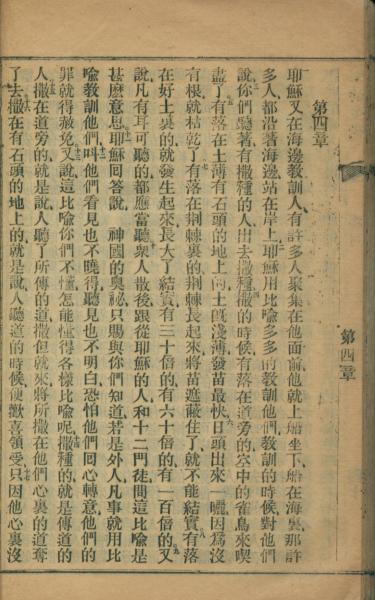 第四章
耶穌又在海邊教訓人、有許多人聚集在他面前、他就上船坐下、船在海裏、那許
多人都沿著海邊站在岸上、耶穌用比喩多多的教訓他們、教訓的時候、對他們
說、你們聽著、有撒種的人出去撒種、撒的時候、有落在道旁的、空中的雀鳥來喫
盡了、有落在土薄有石頭的地上的、土旣淺薄、發苗最快、日頭出來一曬、因爲沒
有根、就枯乾了、有落在荆棘裏的、荆棘長起來、將苗遮蔽住了、就不能結實、有落
在好土裏的、就發生起來、長大了結實、有三十倍的、有六十倍的、有一百倍的、又
說、凡有耳可聽的、都應當聽、衆人散後、跟從耶穌的人、和十二門徒、間這比喩是
甚麽意思、耶穌回答說、神國的奧祕、只賜與你們知道、若是外人、凡事就用比
喩敎訓他們、叫他們看見也不曉得、聽見也不明白、恐怕他們囘心轉意、他們的
罪就得赦免、又說、這比喩你們不懂、怎能懂得各樣比喩呢、撒種的、就是傳道的
人、撒在道旁的、就是說人聽了所傳的道、撒但就來、將所撒在他們心裏的道奪
了去、撒在有石頭的地上的、就是說人聽道的時候、便歡喜領受、只因他心裏沒
第四章